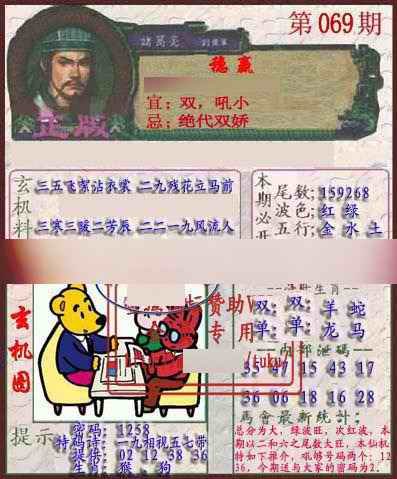 第069期
諸葛亮
稳赢
宜：双，吼小
忌：绝代双娇
正版
玄机料
三五飞絮沾衣裳 二九残花立马前
三寒三暖二芳辰 二二一九风流人
本期必开
尾数:159268
波色:红 绿
五行:金 水 土
生肖
双: 双: 羊 蛇
单: 单: 龙 马
赞助
专用
玄机图
内部泄码
35 47 15 43 17
36 06 18 16 28
馬會最新統計:
总分为大，绿波旺，次红波，本
期以二和六之尾数大旺，本仙机
特如下推介，吼够号码两个: 12
36，今期送与大家的密码为2.
提示
密码: 1258
特码诗: 一九相视五七带
提倍: 02 12 38 36
生肖: 猴，狗